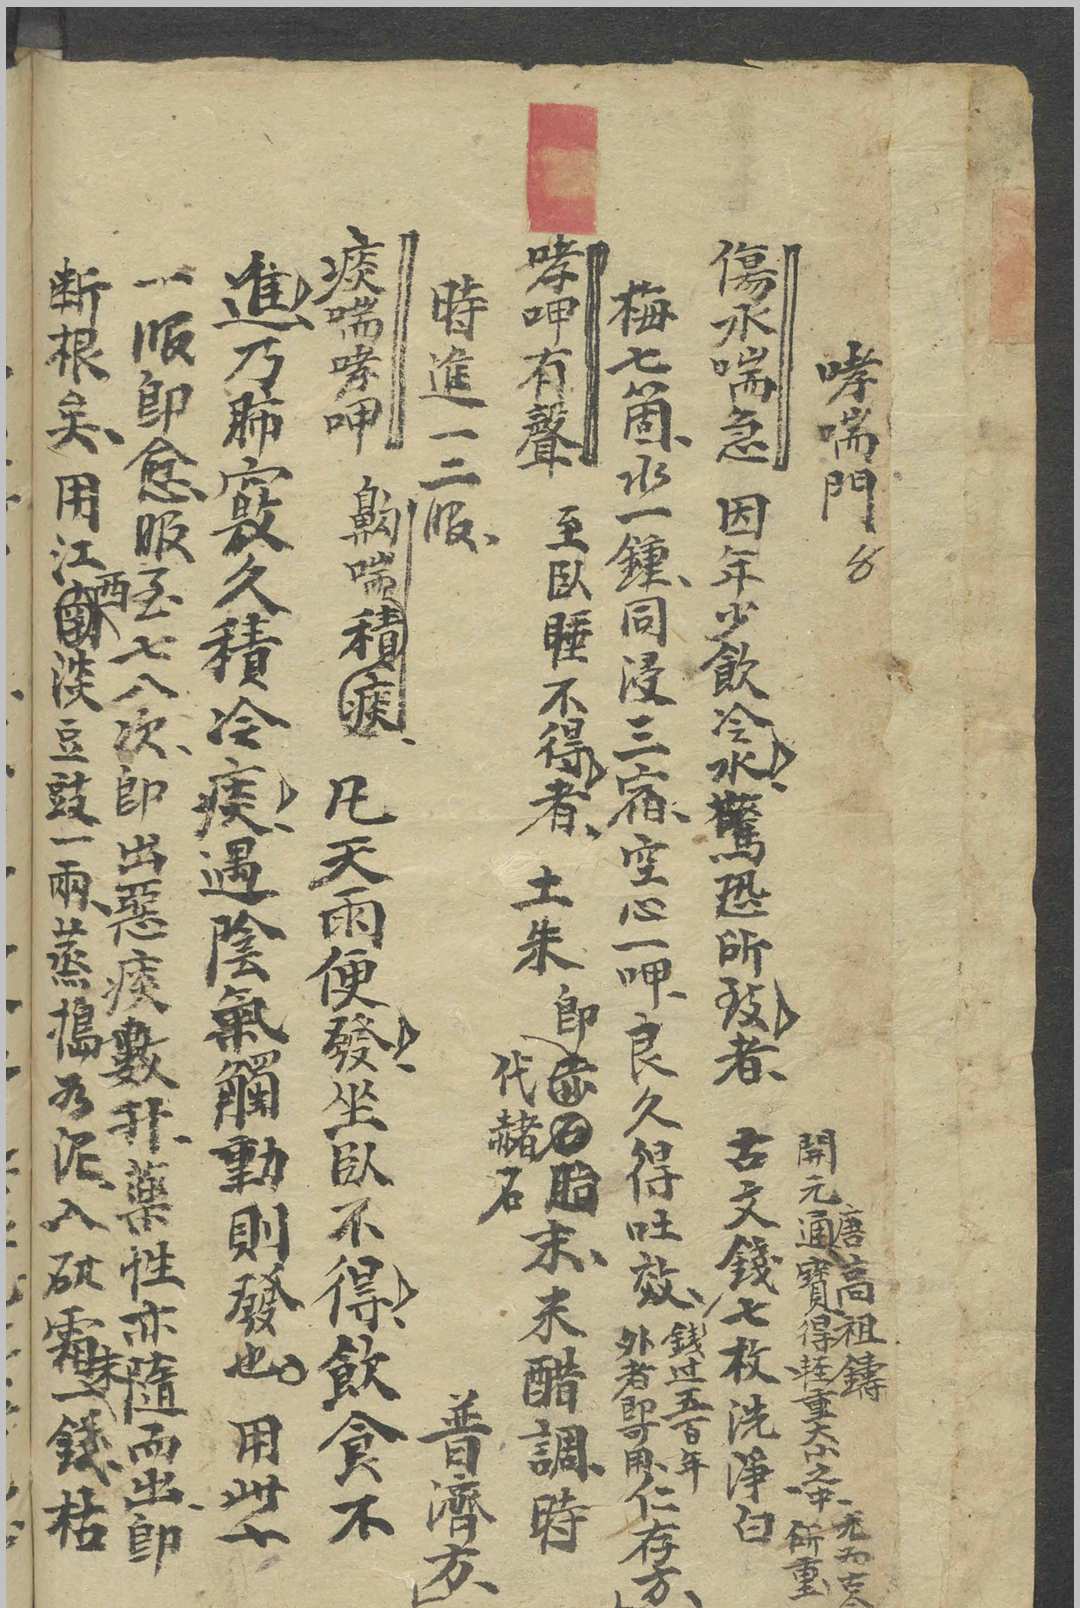 哮喘門 8
傷水喘急 因年少飲冷水驚恐所致者 古文錢七枚洗淨白
唐高祖鑄
開元通寶得輕重大小之中
梅七箇水一鍾同浸三宿空心一呷良久得吐效
錢过五百年
外者即可用 仁存方
哮呷有聲 至臥睡不得者 土朱 末米醋調時
代赭石
時進一二服 普濟方
痰喘哮呷 齁喘積痰 凡天雨便發坐臥不得飲食不
進乃肺竅久積冷痰遇陰氣觸動則發也 用此
一服即愈服至七八次即出惡痰數升藥性亦隨而出即
断根矣 用江西淡豆鼓一兩蒸搗为泥入砒霜末一錢枯